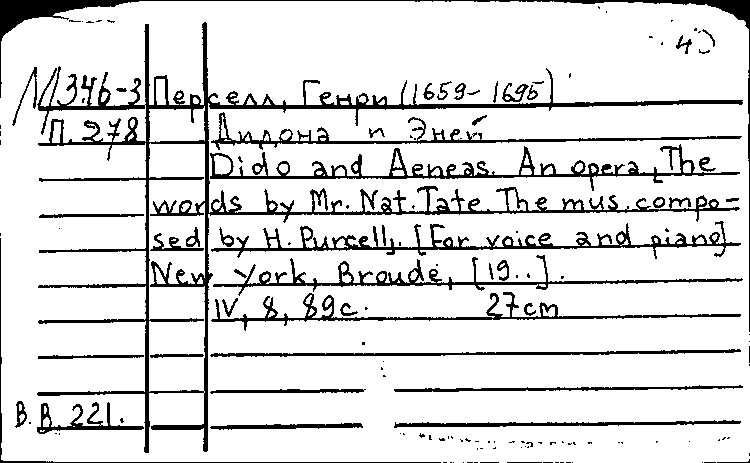 40
М346-3 Перселл, Генри (1659-1695)
П. 278 Дидона и Эней
Dido and Aeneas. An opera, The
words by Mr. Nat. Tate. The mus. compo-
sed by H. Purcell. [For voice and piano]
New York, Broude, [19..].
IV, 8, 89с. 27cm
В. В. 221.